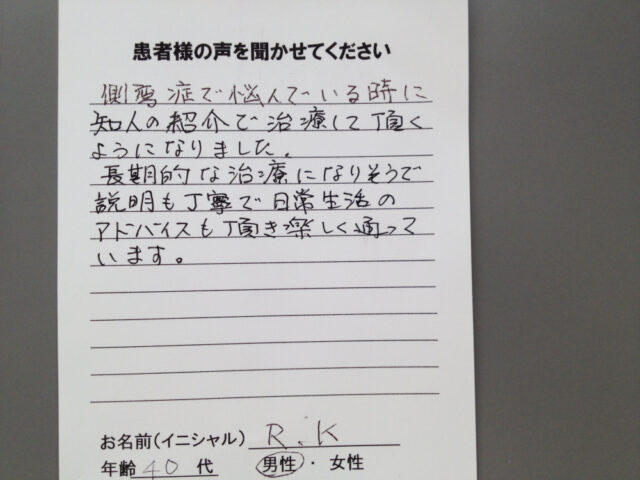 患者様の声を聞かせてください
側弯症で悩んでいる時に
知人の紹介で治療して頂く
ようになりました。
長期的な治療になりそうで
説明も丁寧で日常生活の
アドバイスも頂き楽しく通って
います。
お名前(イニシャル) R.K
年齢 40 代 男性・女性